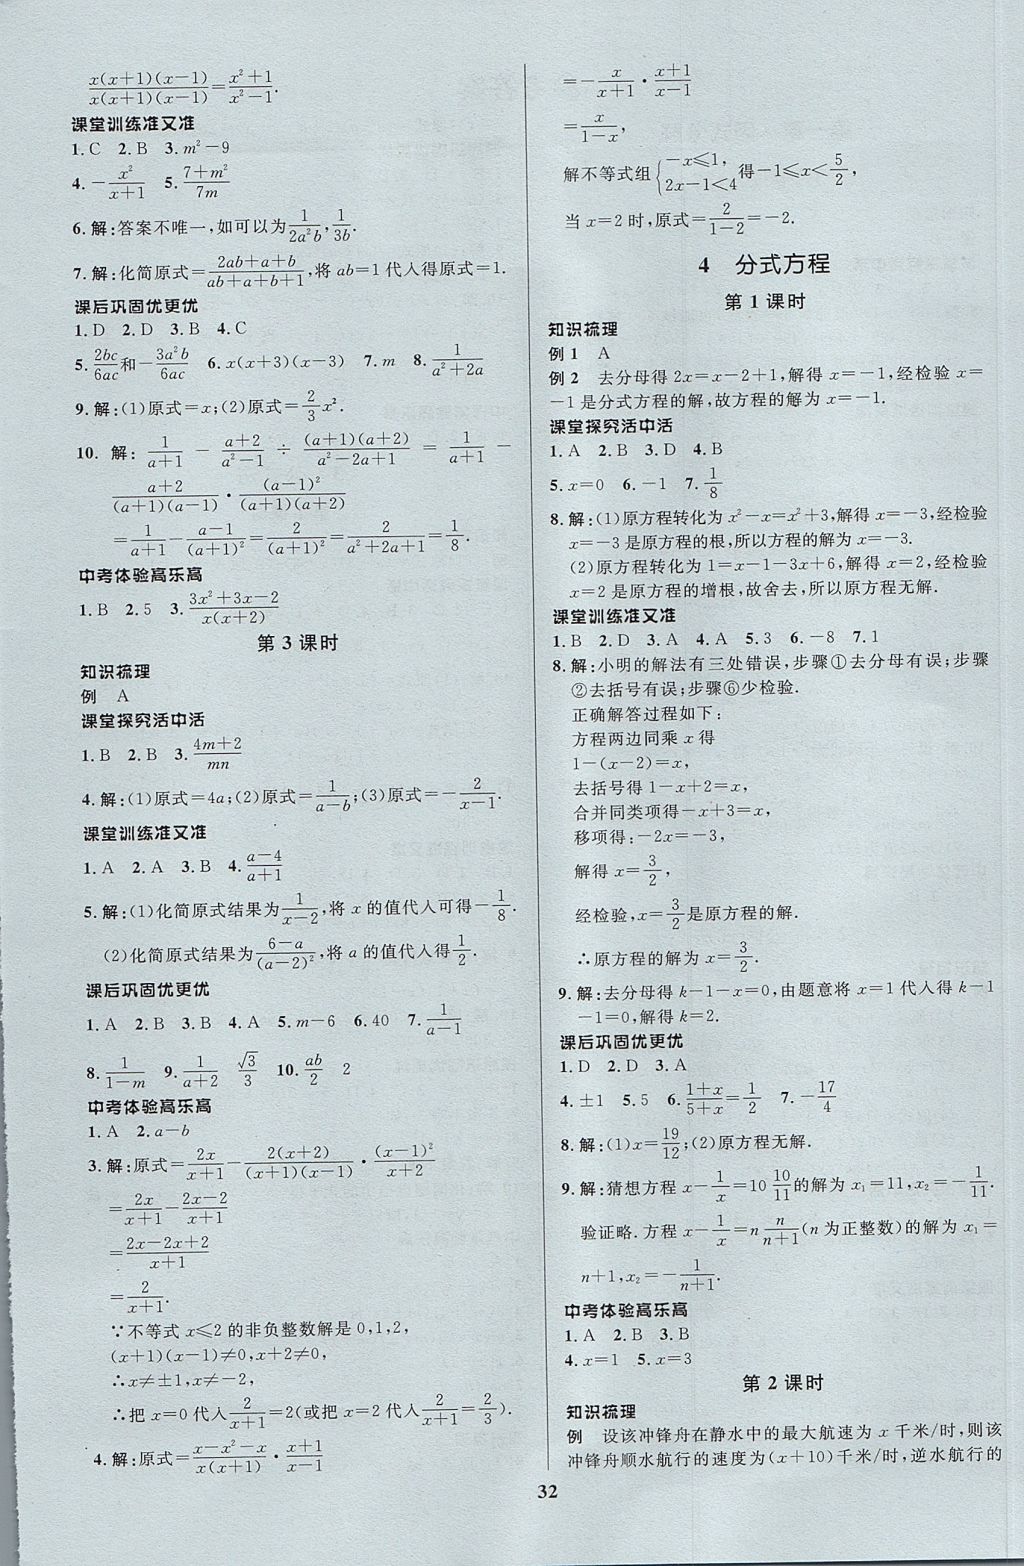 x(x+1)(x-1)/x(x+1)(x-1)=x²+1/x²-1.
课堂训练准又准
1.C 2.B 3.m²-9
4.-x²/x+1 5.7+m²/7m
6.解:答案不唯一,如可以为1/2a²b,1/3b.
7.解:化简原式=2ab+a+b/ab+a+b+1,将ab=1代入得原式=1.
课后巩固优更优
1.D 2.D 3.B 4.C
5.2bc/6ac和-3a²b/6ac 6.x(x+3)(x-3) 7.m 8.1/a²+2a
9.解:(1)原式=x;(2)原式=2/3x².
10.解:1/a+1-a+2/a²-1÷(a+1)(a+2)/a²-2a+1=1/a+1-
a+2/(a+1)(a-1)·(a-1)²/(a+1)(a+2)
=1/a+1-a-1/(a+1)²=2/(a+1)²=2/a²+2a+1=1/8.
中考体验高乐高
1.B 2.5 3.3x²+3x-2/x(x+2)
第3课时
知识梳理
例 A
课堂探究活中活
1.B 2.B 3.4m+2/mn
4.解:(1)原式=4a;(2)原式=1/a-b;(3)原式=-2/x-1.
课堂训练准又准
1.A 2.A 3.B 4.a-4/a+1
5.解:(1)化简原式结果为1/x-2,将x的值代人可得-1/8.
(2)化简原式结果为6-a/(a-2)²,将a的值代人得1/2.
课后巩固优更优
1.A 2.B 3.B 4.A 5.m-6 6.40 7.1/a-1
8.1/1-m 9.1/a+2 √3/3 10.ab/2 2
中考体验高乐高
1.A 2.a-b
3.解:原式=2x/x+1-2(x+2)/(x+1)(x-1)·(x-1)²/x+2
=2x/x+1-2x-2/x+1
=2x-2x+2/x+1
=2/x+1.
∵不等式x≤2的非负整数解是0,1,2,
(x+1)(x-1)≠0,x+2≠0,
∴x≠±1,x≠-2,
∴把x=0代人2/x+1=2(或把x=2代人2/x+1=2/3).
4.解:原式=x-x²-x/x(x+1)·x+1/x-1
=-x/x+1·x+1/x-1
=x/1-x,
解不等式组{-x≤1,2x-1<4得-1≤x<5/2,
当x=2时,原式=2/1-2=-2.
4 分式方程
第1课时
知识梳理
例1 A
例2 去分母得2x=x-2+1,解得x=-1,经检验x=
-1是分式方程的解,故方程的解为x=-1.
课堂探究活中活
1.A 2.B 3.D 4.B
5.x=0 6.-1 7.1/8
8.解:(1)原方程转化为x²-x=x²+3,解得x=-3,经检验
x=-3是原方程的根,所以方程的解为x=-3.
(2)原方程转化为1=x-1-3x+6,解得x=2,经检验
x=2是原方程的增根,故舍去,所以原方程无解.
课堂训练准又准
1.B 2.D 3.A 4.A 5.3 6.-8 7.1
8.解:小明的解法有三处错误,步骤①去分母有误;步骤
②去括号有误;步骤⑥少检验.
正确解答过程如下:
方程两边同乘x得
1-(x-2)=x,
去括号得1-x+2=x,
合并同类项得-x+3=x,
移项得:-2x=-3,
解得x=3/2,
经检验,x=3/2是原方程的解.
∴原方程的解为x=3/2.
9.解:去分母得k-1-x=0,由题意将x=1代人得k-1
-1=0,解得k=2.
课后巩固优更优
1.D 2.D 3.A
4.±1 5.5 6.1+x/5+x=1/2 7.-17/4
8.解:(1)x=19/12;(2)原方程无解.
9.解:猜想方程x-1/x=10 10/11的解为x₁=11,x₂=-1/11.
验证略.方程x-1/x=n n/n+1(n为正整数)的解为x₁=
n+1,x₂=-1/n+1.
中考体验高乐高
1.A 2.B 3.B
4.x=1 5.x=3
第2课时
知识梳理
例 设该冲锋舟在静水中的最大航速为x千米/时,则该
冲锋舟顺水航行的速度为(x+10)千米/时,逆水航行的
32